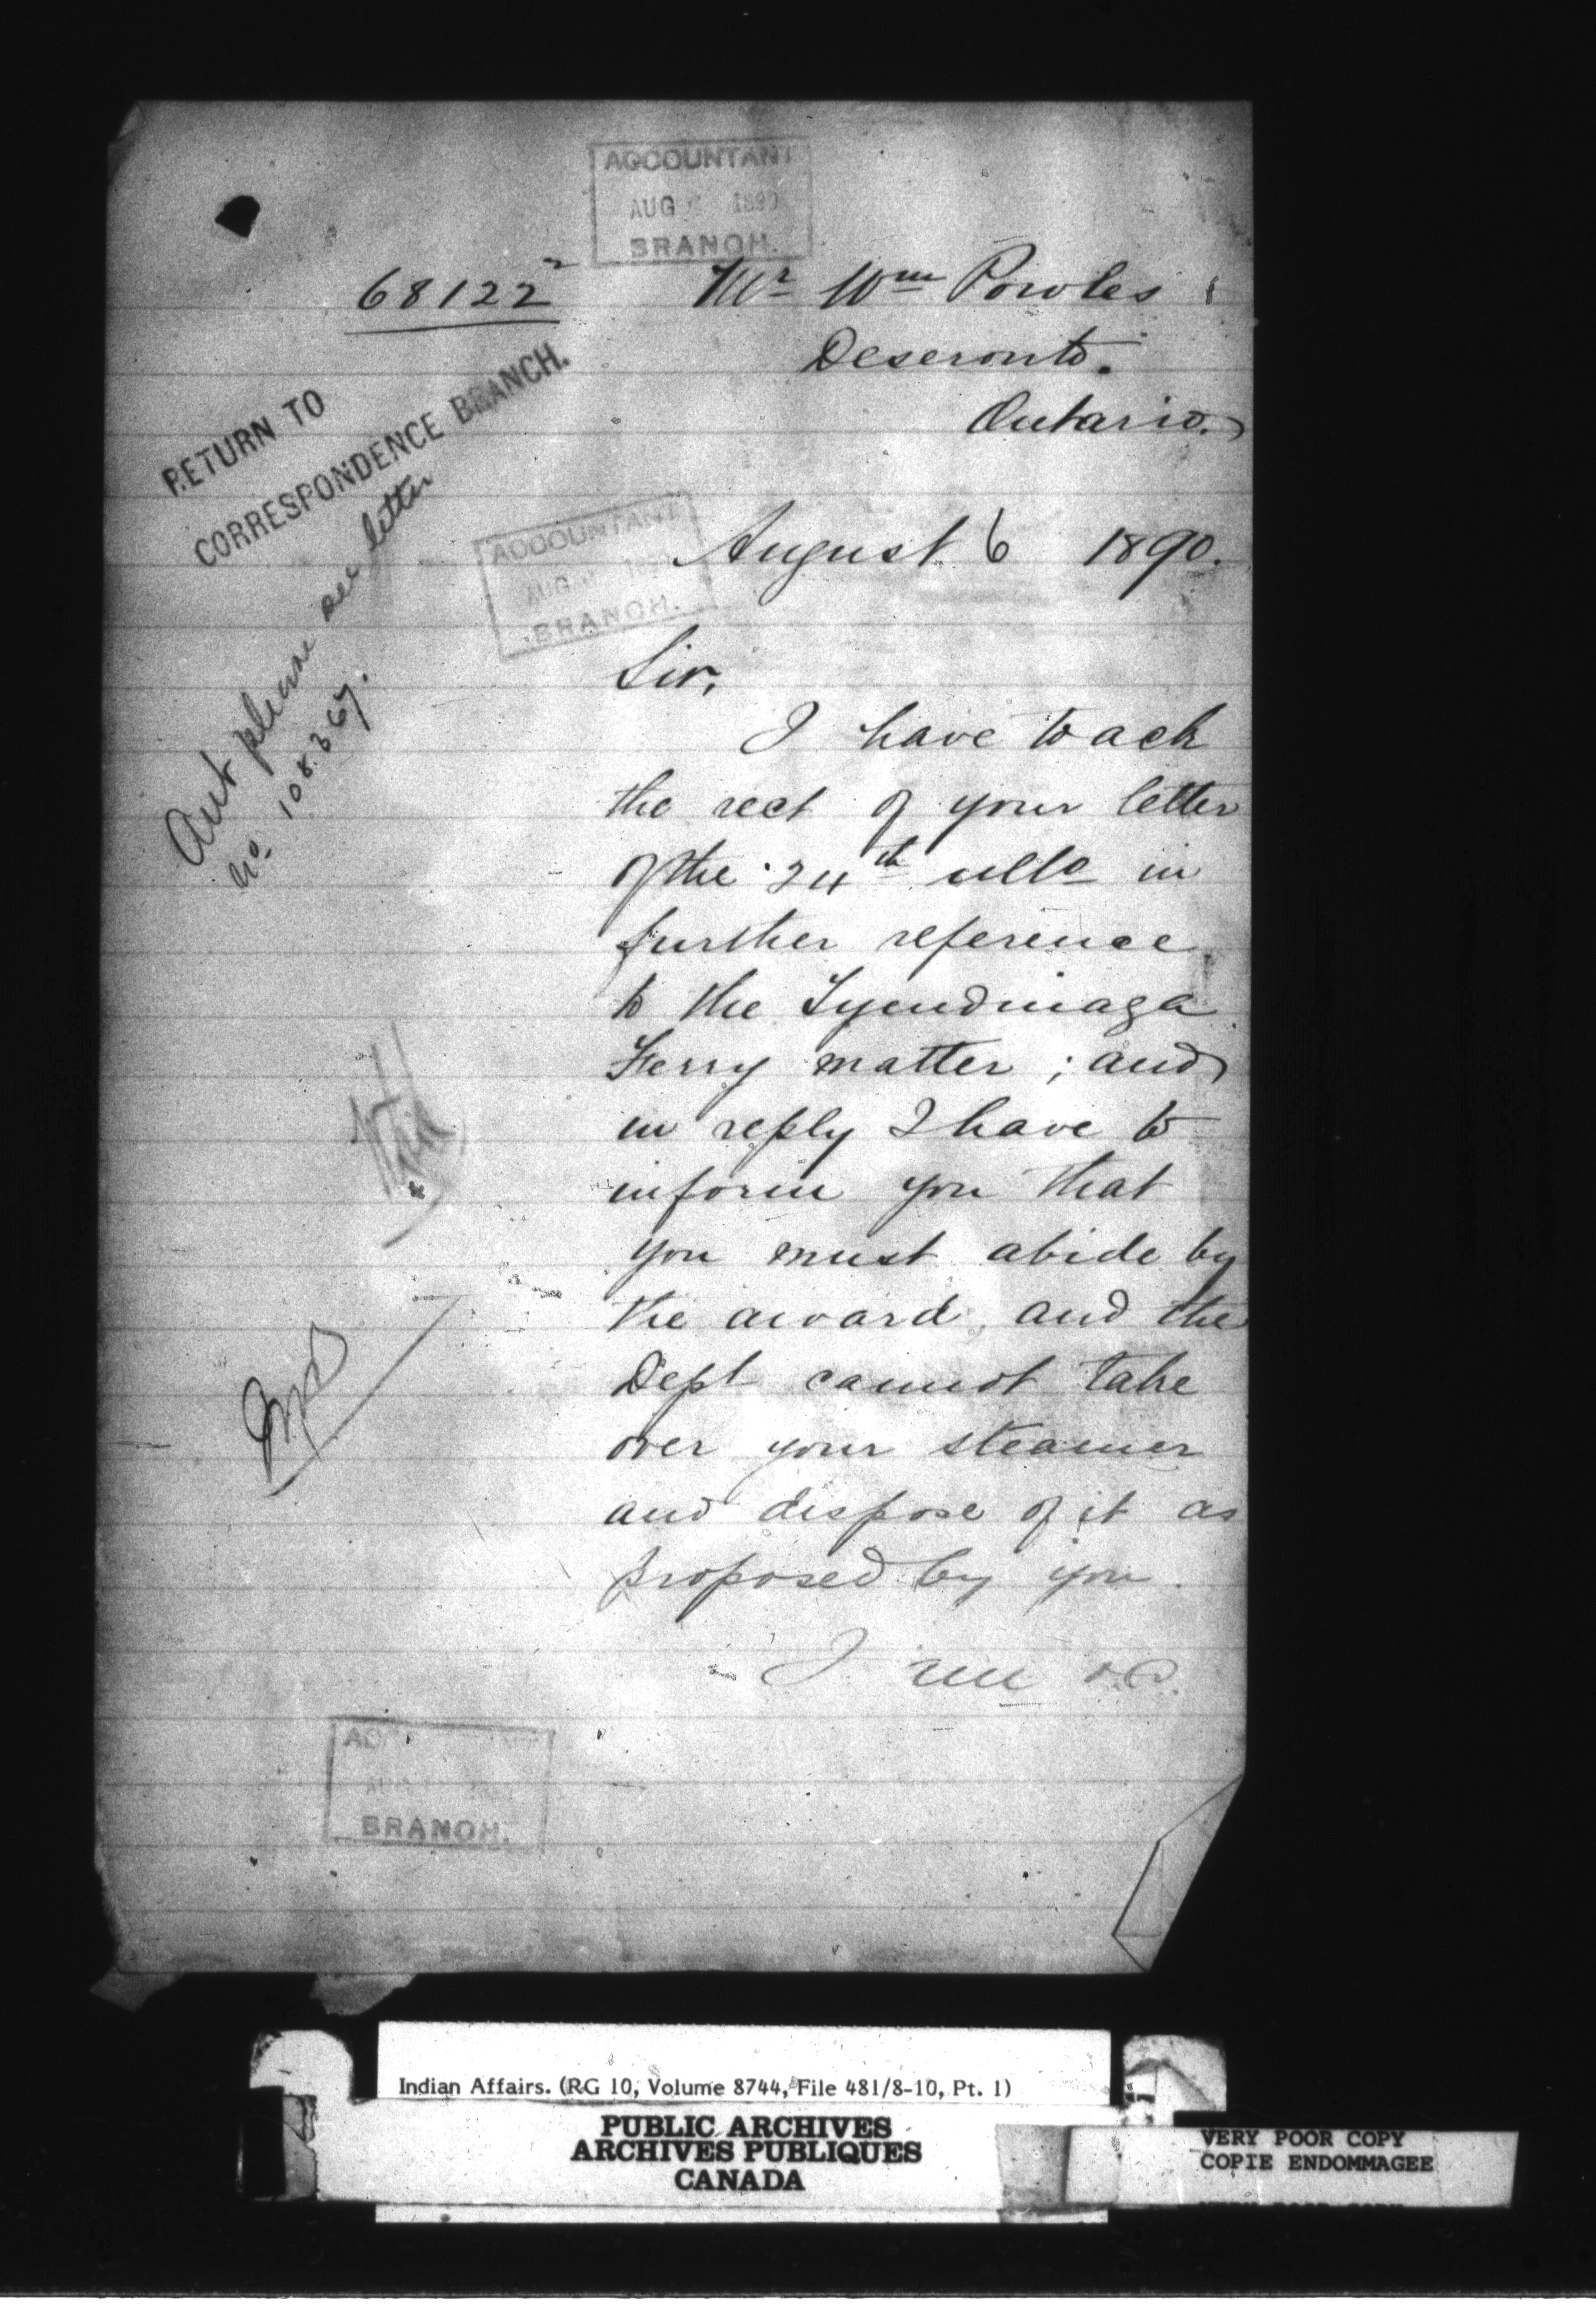 ACCOUNTANT
AUG 1890
BRANCH.
68122²
Mr Wm Powles
Deseronto.
Ontario.
RETURN TO
CORRESPONDENCE BRANCH.
please see letter
No. 108.367.
ACCOUNTANT
AUG
BRANCH.
August 6 1890.
Sir,
I have to ack
the rect of your letter
of the 24th ulto in
further reference
to the Tyendinaga
Ferry matter; and
in reply I have to
inform you that
you must abide by
the award, and the
Dept cannot take
over your steamer
and dispose of it as
proposed by you.
I am
BRANCH.
Indian Affairs. (RG 10, Volume 8744, File 481/8-10, Pt. 1)
PUBLIC ARCHIVES
ARCHIVES PUBLIQUES
CANADA
VERY POOR COPY
COPIE ENDOMMAGEE